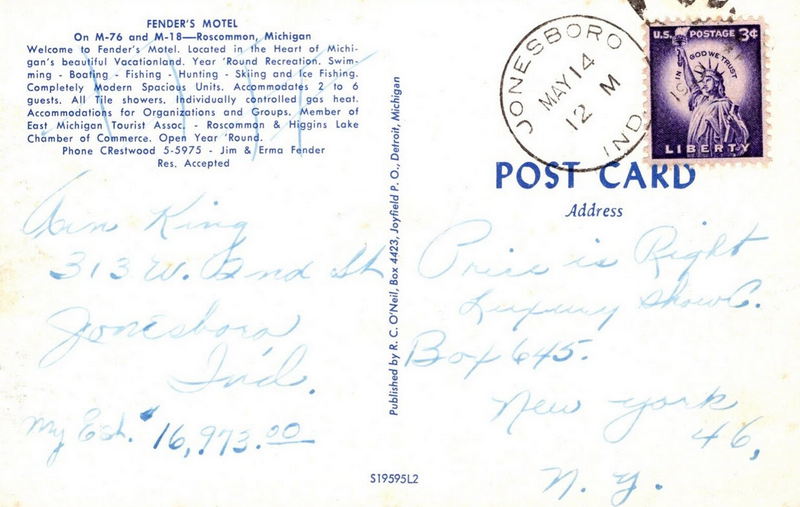 FENDER'S MOTEL
On M-76 and M-18—Roscommon, Michigan
Welcome to Fender's Motel. Located in the Heart of Michi-
gan's beautiful Vacationland. Year 'Round Recreation. Swim-
ming - Boating - Fishing - Hunting - Skiing and Ice Fishing.
Completely Modern Spacious Units. Accommodates 2 to 6
guests. All Tile showers. Individually controlled gas heat.
Accommodations for Organizations and Groups. Member of
East Michigan Tourist Assoc. - Roscommon & Higgins Lake
Chamber of Commerce. Open Year 'Round.
Phone CRestwood 5-5975 - Jim & Erma Fender
Res. Accepted
King
313 W. 2nd St
Jonesboro
Ind.
My Est. $16,973.00
Published by R. C. O'Neil, Box 4423, Joyfield P. O., Detroit, Michigan
S19595L2
JONESBORO
MAY 14
12 M
IND.
U.S. POSTAGE 3¢
IN GOD WE TRUST
LIBERTY
POST CARD
Address
Price is Right
Luxury Show C.
Box 645.
New York
46,
N. Y.